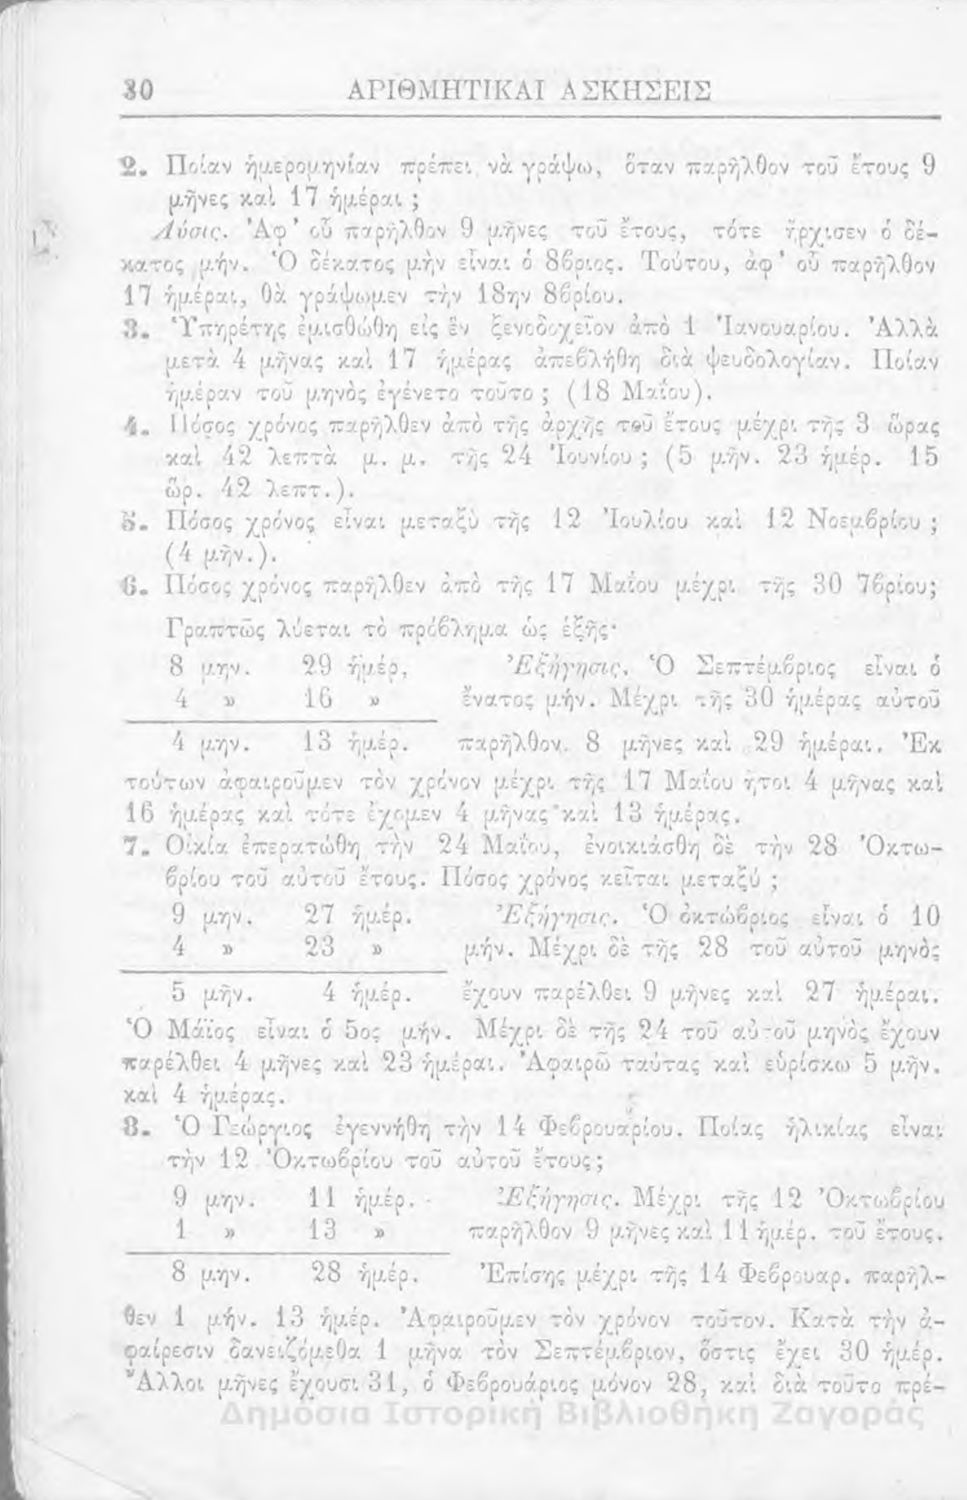 30 ΑΡΙΘΜΗΤΙΚΑΙ ΑΣΚΗΣΕΙΣ
2. Ποίαν ἡμερομηνίαν πρέπει νὰ γράψω, ὅταν παρῆλθον τοῦ ἔτους 9
μῆνες καὶ 17 ἡμέραι ;
Λύσις. Ἀφ’ οὗ παρῆλθον 9 μῆνες τοῦ ἔτους, τότε ἤρχισεν ὁ δέ-
κατος μήν. Ὁ δέκατος μὴν εἶναι ὁ 8βριος. Τούτου, ἀφ’ οὗ παρῆλθον
17 ἡμέραι, θὰ γράψωμεν τὴν 18ην 8βρίου.
3. Ὑπηρέτης ἐμισθώθη εἰς ἓν ξενοδοχεῖον ἀπὸ 1 Ἰανουαρίου. Ἀλλὰ
μετὰ 4 μῆνας καὶ 17 ἡμέρας ἀπεβλήθη διὰ ψευδολογίαν. Ποίαν
ἡμέραν τοῦ μηνὸς ἐγένετο τοῦτο ; (18 Μαΐου).
4. Πόσος χρόνος παρῆλθεν ἀπὸ τῆς ἀρχῆς τοῦ ἔτους μέχρι τῆς 3 ὥρας
καὶ 42 λεπτὰ μ. μ. τῆς 24 Ἰουνίου ; (5 μῆν. 23 ἡμέρ. 15
ὥρ. 42 λεπτ.).
5. Πόσος χρόνος εἶναι μεταξὺ τῆς 12 Ἰουλίου καὶ 12 Νοεμβρίου ;
(4 μῆν.).
6. Πόσος χρόνος παρῆλθεν ἀπὸ τῆς 17 Μαΐου μέχρι τῆς 30 7βρίου;
Γραπτῶς λύεται τὸ πρόβλημα ὡς ἑξῆς·
8 μην. 29 ἡμέρ. Ἐξήγησις. Ὁ Σεπτέμβριος εἶναι ὁ
4 » 16 » ἔνατος μήν. Μέχρι τῆς 30 ἡμέρας αὐτοῦ
4 μην. 13 ἡμέρ. παρῆλθον 8 μῆνες καὶ 29 ἡμέραι. Ἐκ
τούτων ἀφαιροῦμεν τὸν χρόνον μέχρι τῆς 17 Μαΐου ἤτοι 4 μῆνας καὶ
16 ἡμέρας καὶ τότε ἔχομεν 4 μῆνας καὶ 13 ἡμέρας.
7. Οἰκία ἐπερατώθη τὴν 24 Μαΐου, ἐνοικιάσθη δὲ τὴν 28 Ὀκτω-
βρίου τοῦ αὐτοῦ ἔτους. Πόσος χρόνος κεῖται μεταξύ ;
9 μην. 27 ἡμέρ. Ἐξήγησις. Ὁ ὀκτώβριος εἶναι ὁ 10
4 » 23 » μήν. Μέχρι δὲ τῆς 28 τοῦ αὐτοῦ μηνὸς
5 μῆν. 4 ἡμέρ. ἔχουν παρέλθει 9 μῆνες καὶ 27 ἡμέραι.
Ὁ Μάϊος εἶναι ὁ 5ος μήν. Μέχρι δὲ τῆς 24 τοῦ αὐτοῦ μηνὸς ἔχουν
παρέλθει 4 μῆνες καὶ 23 ἡμέραι. Ἀφαιρῶ ταύτας καὶ εὑρίσκω 5 μῆν.
καὶ 4 ἡμέρας.
8. Ὁ Γεώργιος ἐγεννήθη τὴν 14 Φεβρουαρίου. Ποίας ἡλικίας εἶναι
τὴν 12 Ὀκτωβρίου τοῦ αὐτοῦ ἔτους;
9 μην. 11 ἡμέρ. Ἐξήγησις. Μέχρι τῆς 12 Ὀκτωβρίου
1 » 13 » παρῆλθον 9 μῆνες καὶ 11 ἡμέρ. τοῦ ἔτους.
8 μην. 28 ἡμέρ. Ἐπίσης μέχρι τῆς 14 Φεβρουαρ. παρῆλ-
θεν 1 μήν. 13 ἡμέρ. Ἀφαιροῦμεν τὸν χρόνον τοῦτον. Κατὰ τὴν ἀ-
φαίρεσιν δανειζόμεθα 1 μῆνα τὸν Σεπτέμβριον, ὅστις ἔχει 30 ἡμέρ.
Ἄλλοι μῆνες ἔχουσι 31, ὁ Φεβρουάριος μόνον 28, καὶ διὰ τοῦτο πρέ-
Δημόσια Ιστορική Βιβλιοθήκη Ζαγοράς